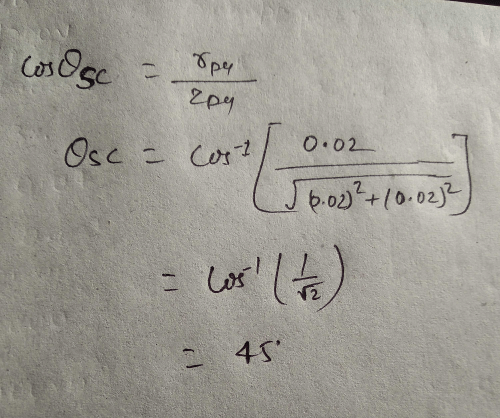 cosθsc = rpy / zpy
θsc = cos⁻¹ [ 0.02 / √(0.02)² + (0.02)² ]
= cos⁻¹ (1/√2)
= 45°